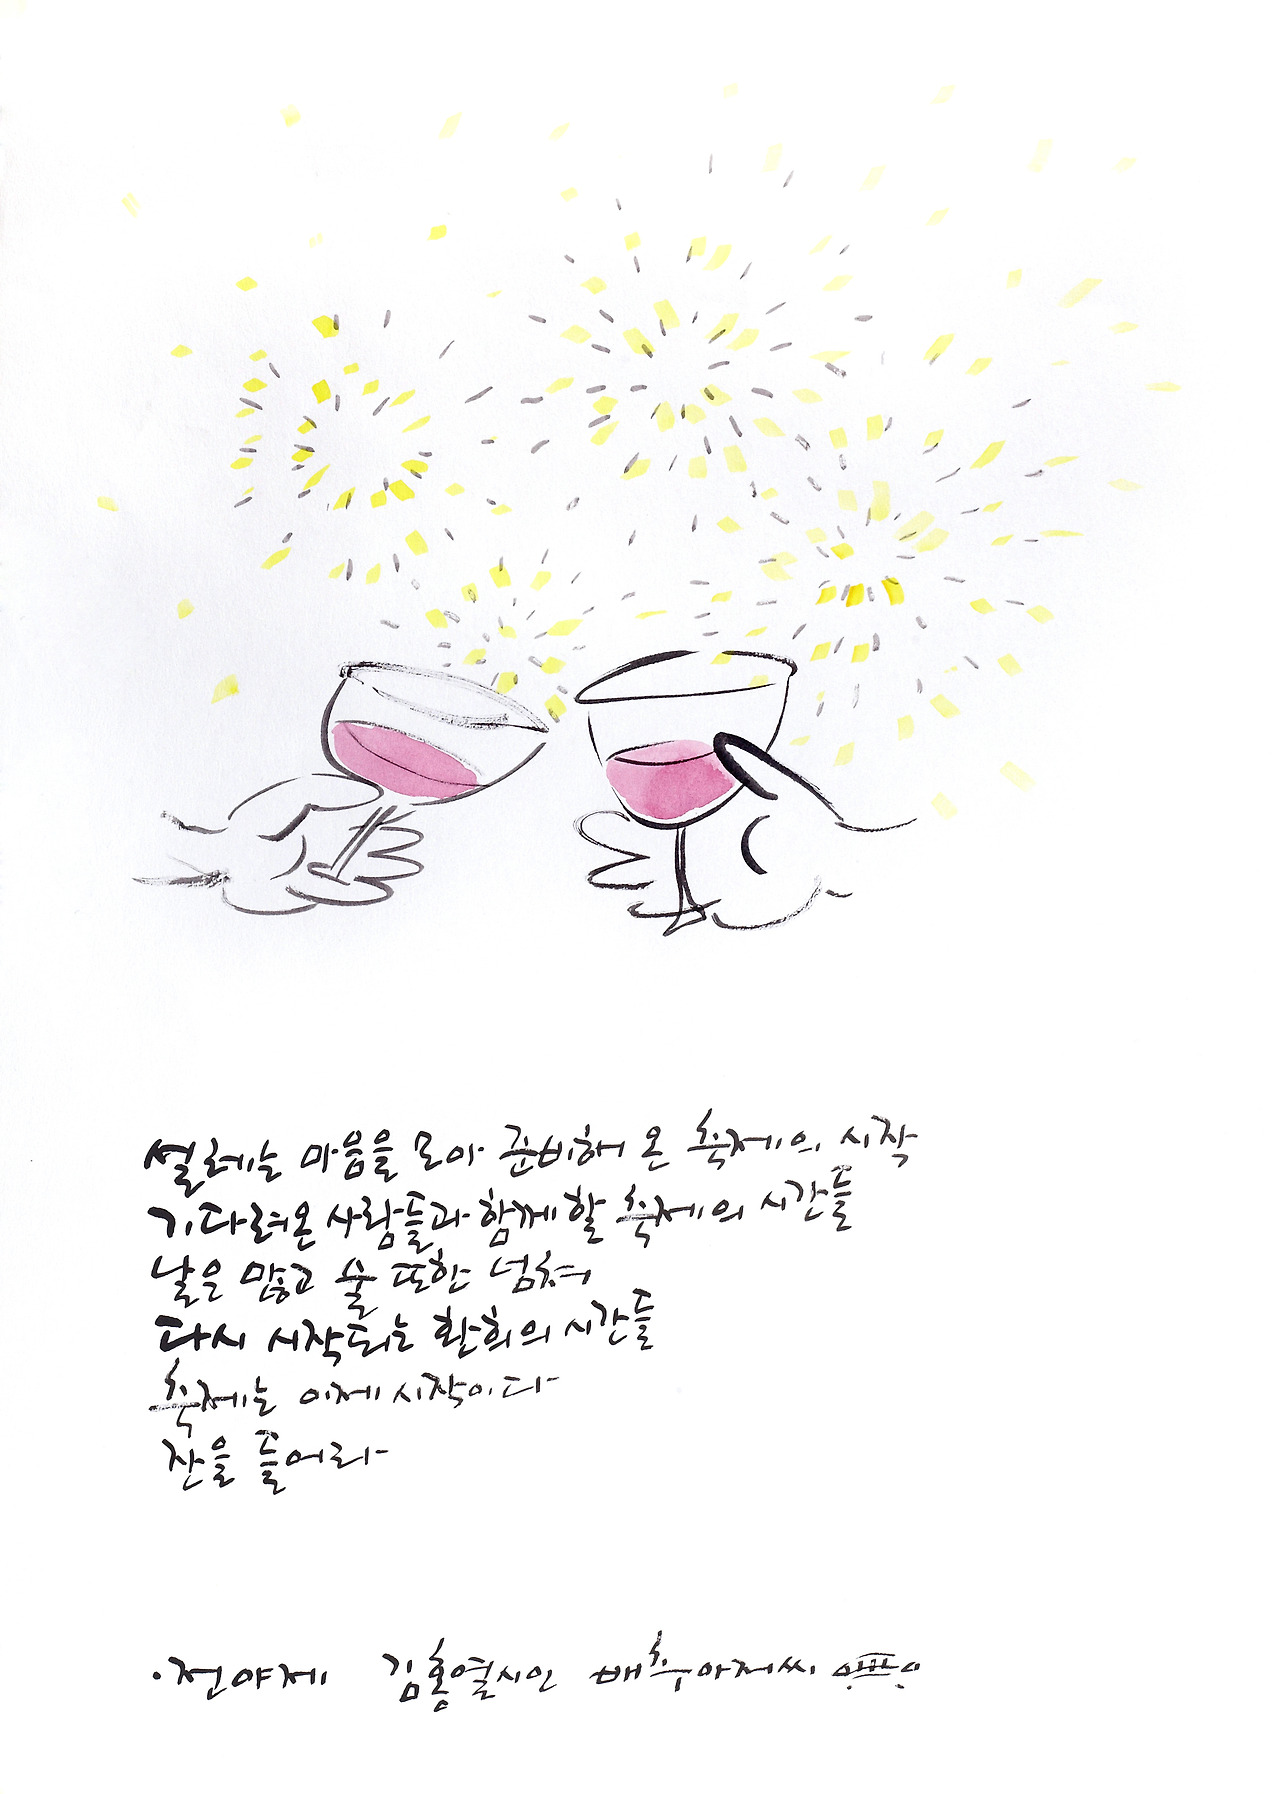 설레는 마음을 모아 준비해 온 축제의 시작
기다려온 사람들과 함께 할 축제의 시간들
날은 맑고 술 또한 넘쳐
다시 시작되는 환희의 시간들
축제는 이제 시작이다
잔을 들어라
·전야제 김홍열시인 배추아저씨